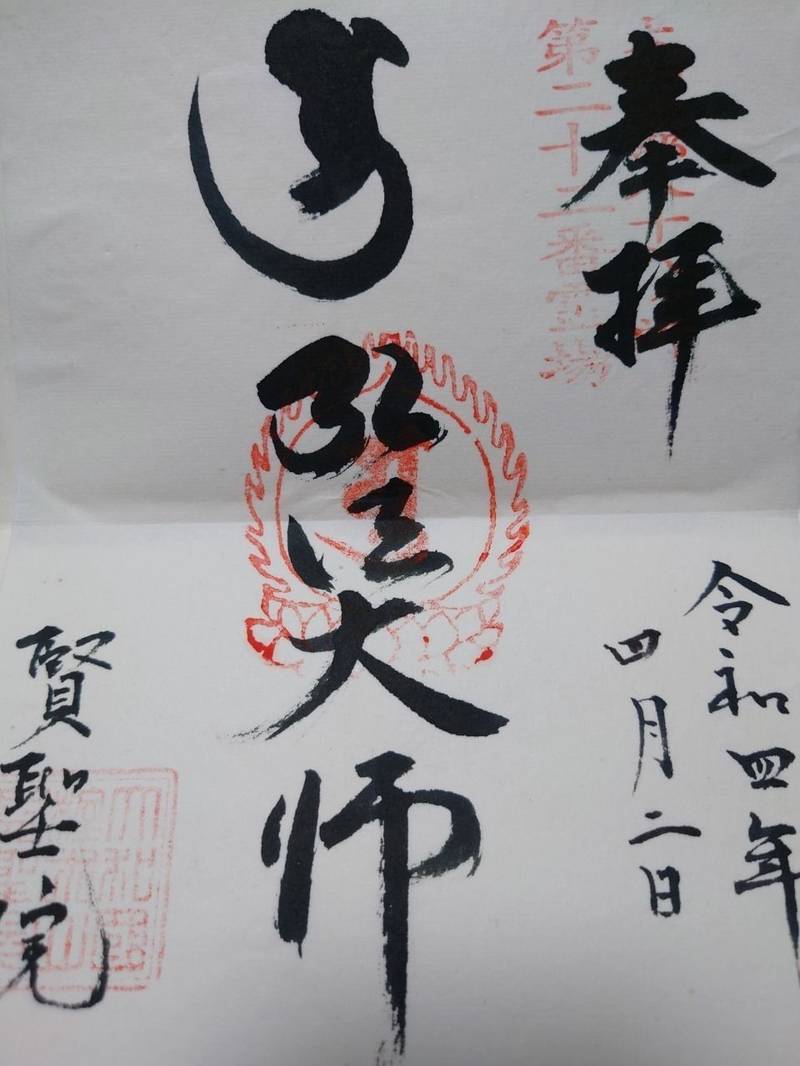 奉拝
第二十二番霊場
令和四年
四月二日
弘法大師
賢聖院